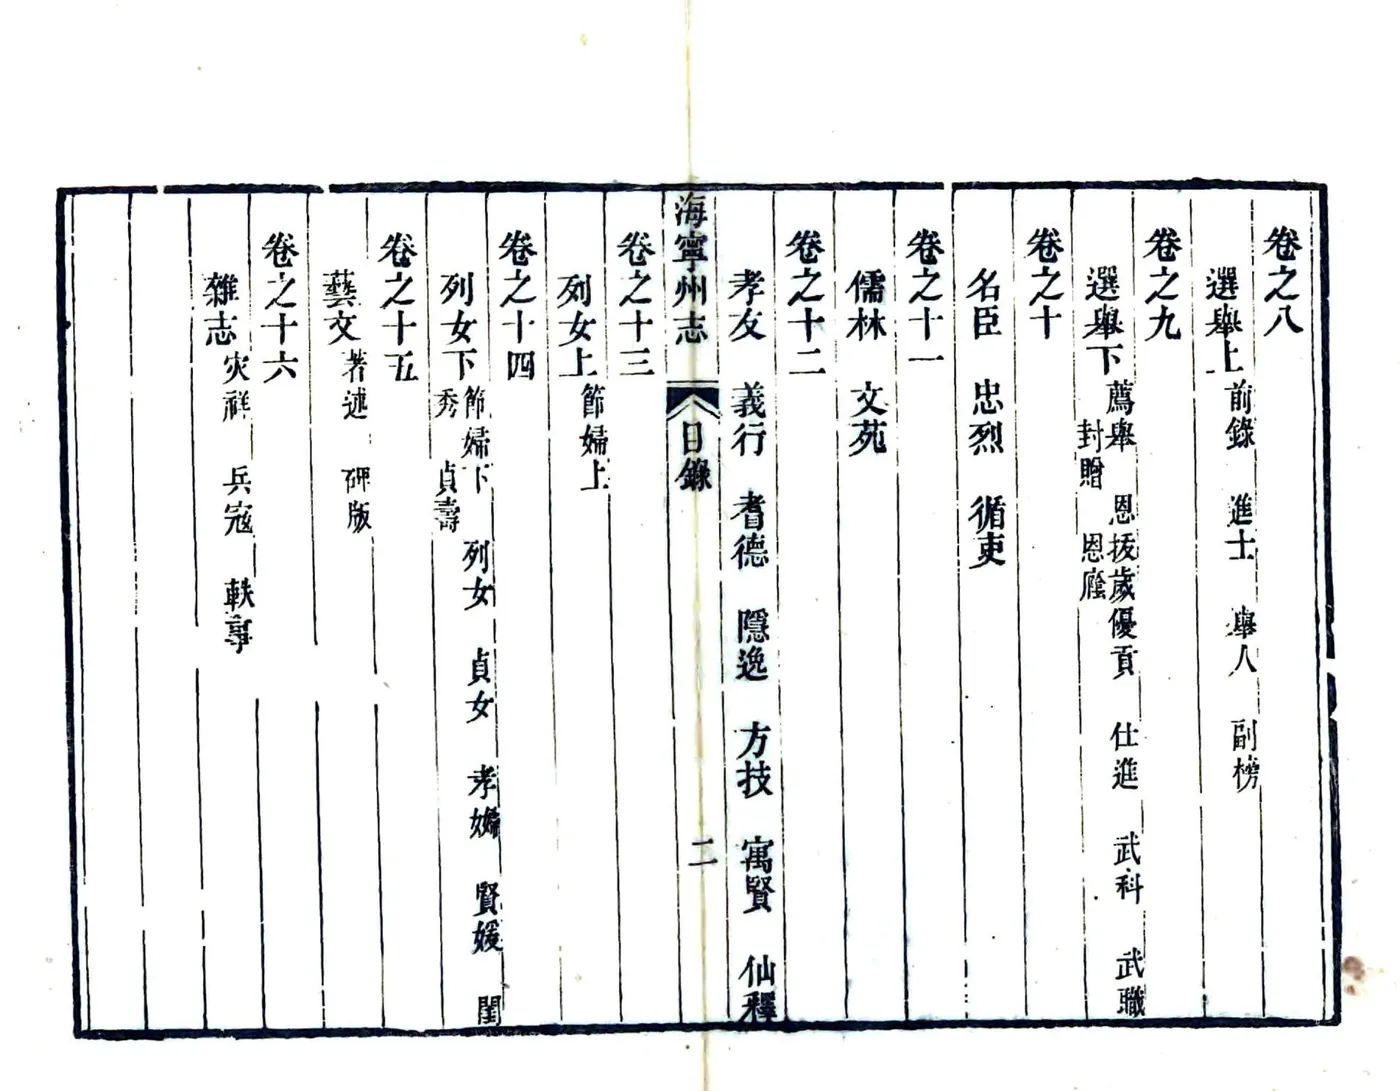 卷之八
選舉上 前錄 進士 舉人 副榜
卷之九
選舉下 薦舉 恩拔歲優貢 仕進 武科 武職
封贈 恩廕
卷之十
名臣 忠烈 循吏
卷之十一
儒林 文苑
卷之十二
孝友 義行 耆德 隱逸 方技 寓賢 仙釋
海寧州志 目錄 二
卷之十三
列女上 節婦上
卷之十四
列女下 節婦下 列女 貞女 孝婦 賢媛 閨
秀 貞壽
卷之十五
藝文 著述 碑版
卷之十六
雜志 灾祥 兵寇 軼事